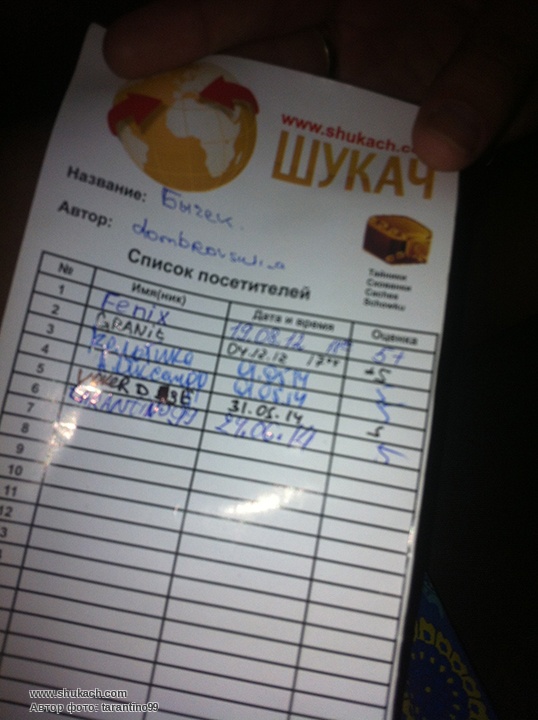 www.shukach.c
ШУКАЧ
Название: Бычек.
Автор:
Тайники
Схованки
Caches
Schowku
Список посетителей
№ Имя(ник) Дата и время Оценка
1 Fenix 19.08.12 5+
2 GRANit 04.12.12 +5
3
4
5 31.05.14 5
6 TARANTINO99 29.06.14 5
7
8
9
10
11
12
3
www.shukach.com
Автор фото: tarantino99